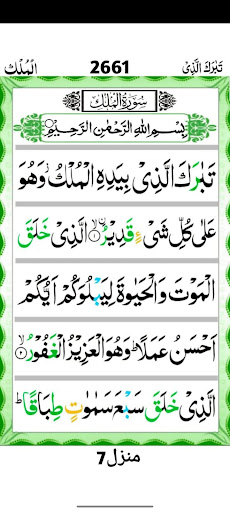 تَبٰرَكَ الَّذِىۡ 2661 الۡمُلۡك
سُوۡرَةُ الۡمُلۡكِ
بِسۡمِ اللهِ الرَّحۡمٰنِ الرَّحِيۡمِ
تَبٰرَكَ الَّذِىۡ بِيَدِهِ الۡمُلۡكُ وَهُوَ
عَلٰى كُلِّ شَىۡءٍ قَدِيۡرُ ۙ‏﴿۱﴾ الَّذِىۡ خَلَقَ
الۡمَوۡتَ وَالۡحَيٰوةَ لِيَبۡلُوَكُمۡ اَيُّكُمۡ
اَحۡسَنُ عَمَلًا ؕ وَهُوَ الۡعَزِيۡزُ الۡغَفُوۡرُ ۙ‏﴿۲﴾
الَّذِىۡ خَلَقَ سَبۡعَ سَمٰوٰتٍ طِبَاقًا ؕ
منزل 7